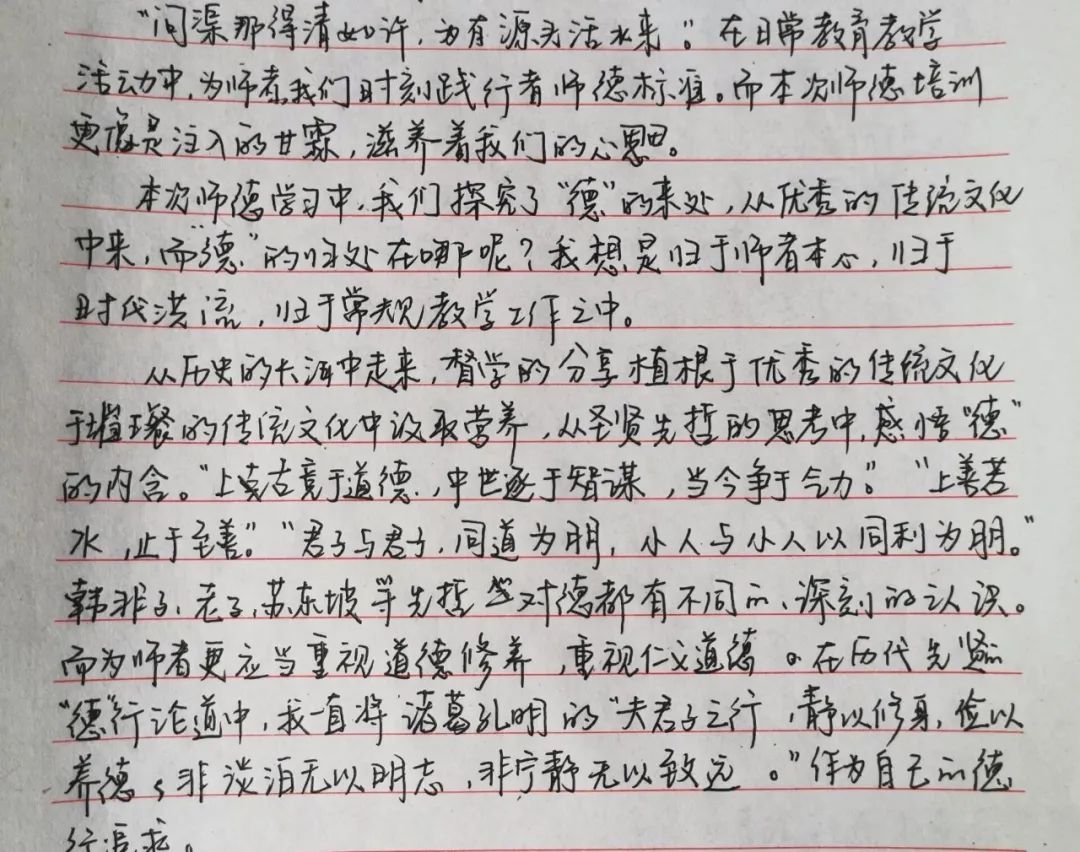 “问渠那得清如许，为有源头活水来”。在日常教育教学
活动中，为师者我们时刻践行者师德标准。而本次师德培训
更像是注入的甘霖，滋养着我们的心思。
本次师德学习中，我们探究了“德”的来处，从优秀的传统文化
中来，而“德”的归处在哪呢？我想是归于师者本心，归于
时代洪流，归于常规教学工作之中。
从历史的长河中走来，督学的分享植根于优秀的传统文化
于璀璨的传统文化中汲取营养，从圣贤先哲的思考中，感悟“德”
的内含。“上古竞于道德，中世逐于智谋，当今争于气力。”“上善若
水，止于至善”。“君子与君子，同道为朋，小人与小人以同利为朋。”
韩非子、老子、苏东坡等先哲对德都有不同的、深刻的认识。
而为师者更应当重视道德修养，重视仁义道德。在历代先贤
“德”行论道中，我一直将诸葛孔明的“夫君子之行，静以修身，俭以
养德；非淡泊无以明志，非宁静无以致远。”作为自己的德
行追求。